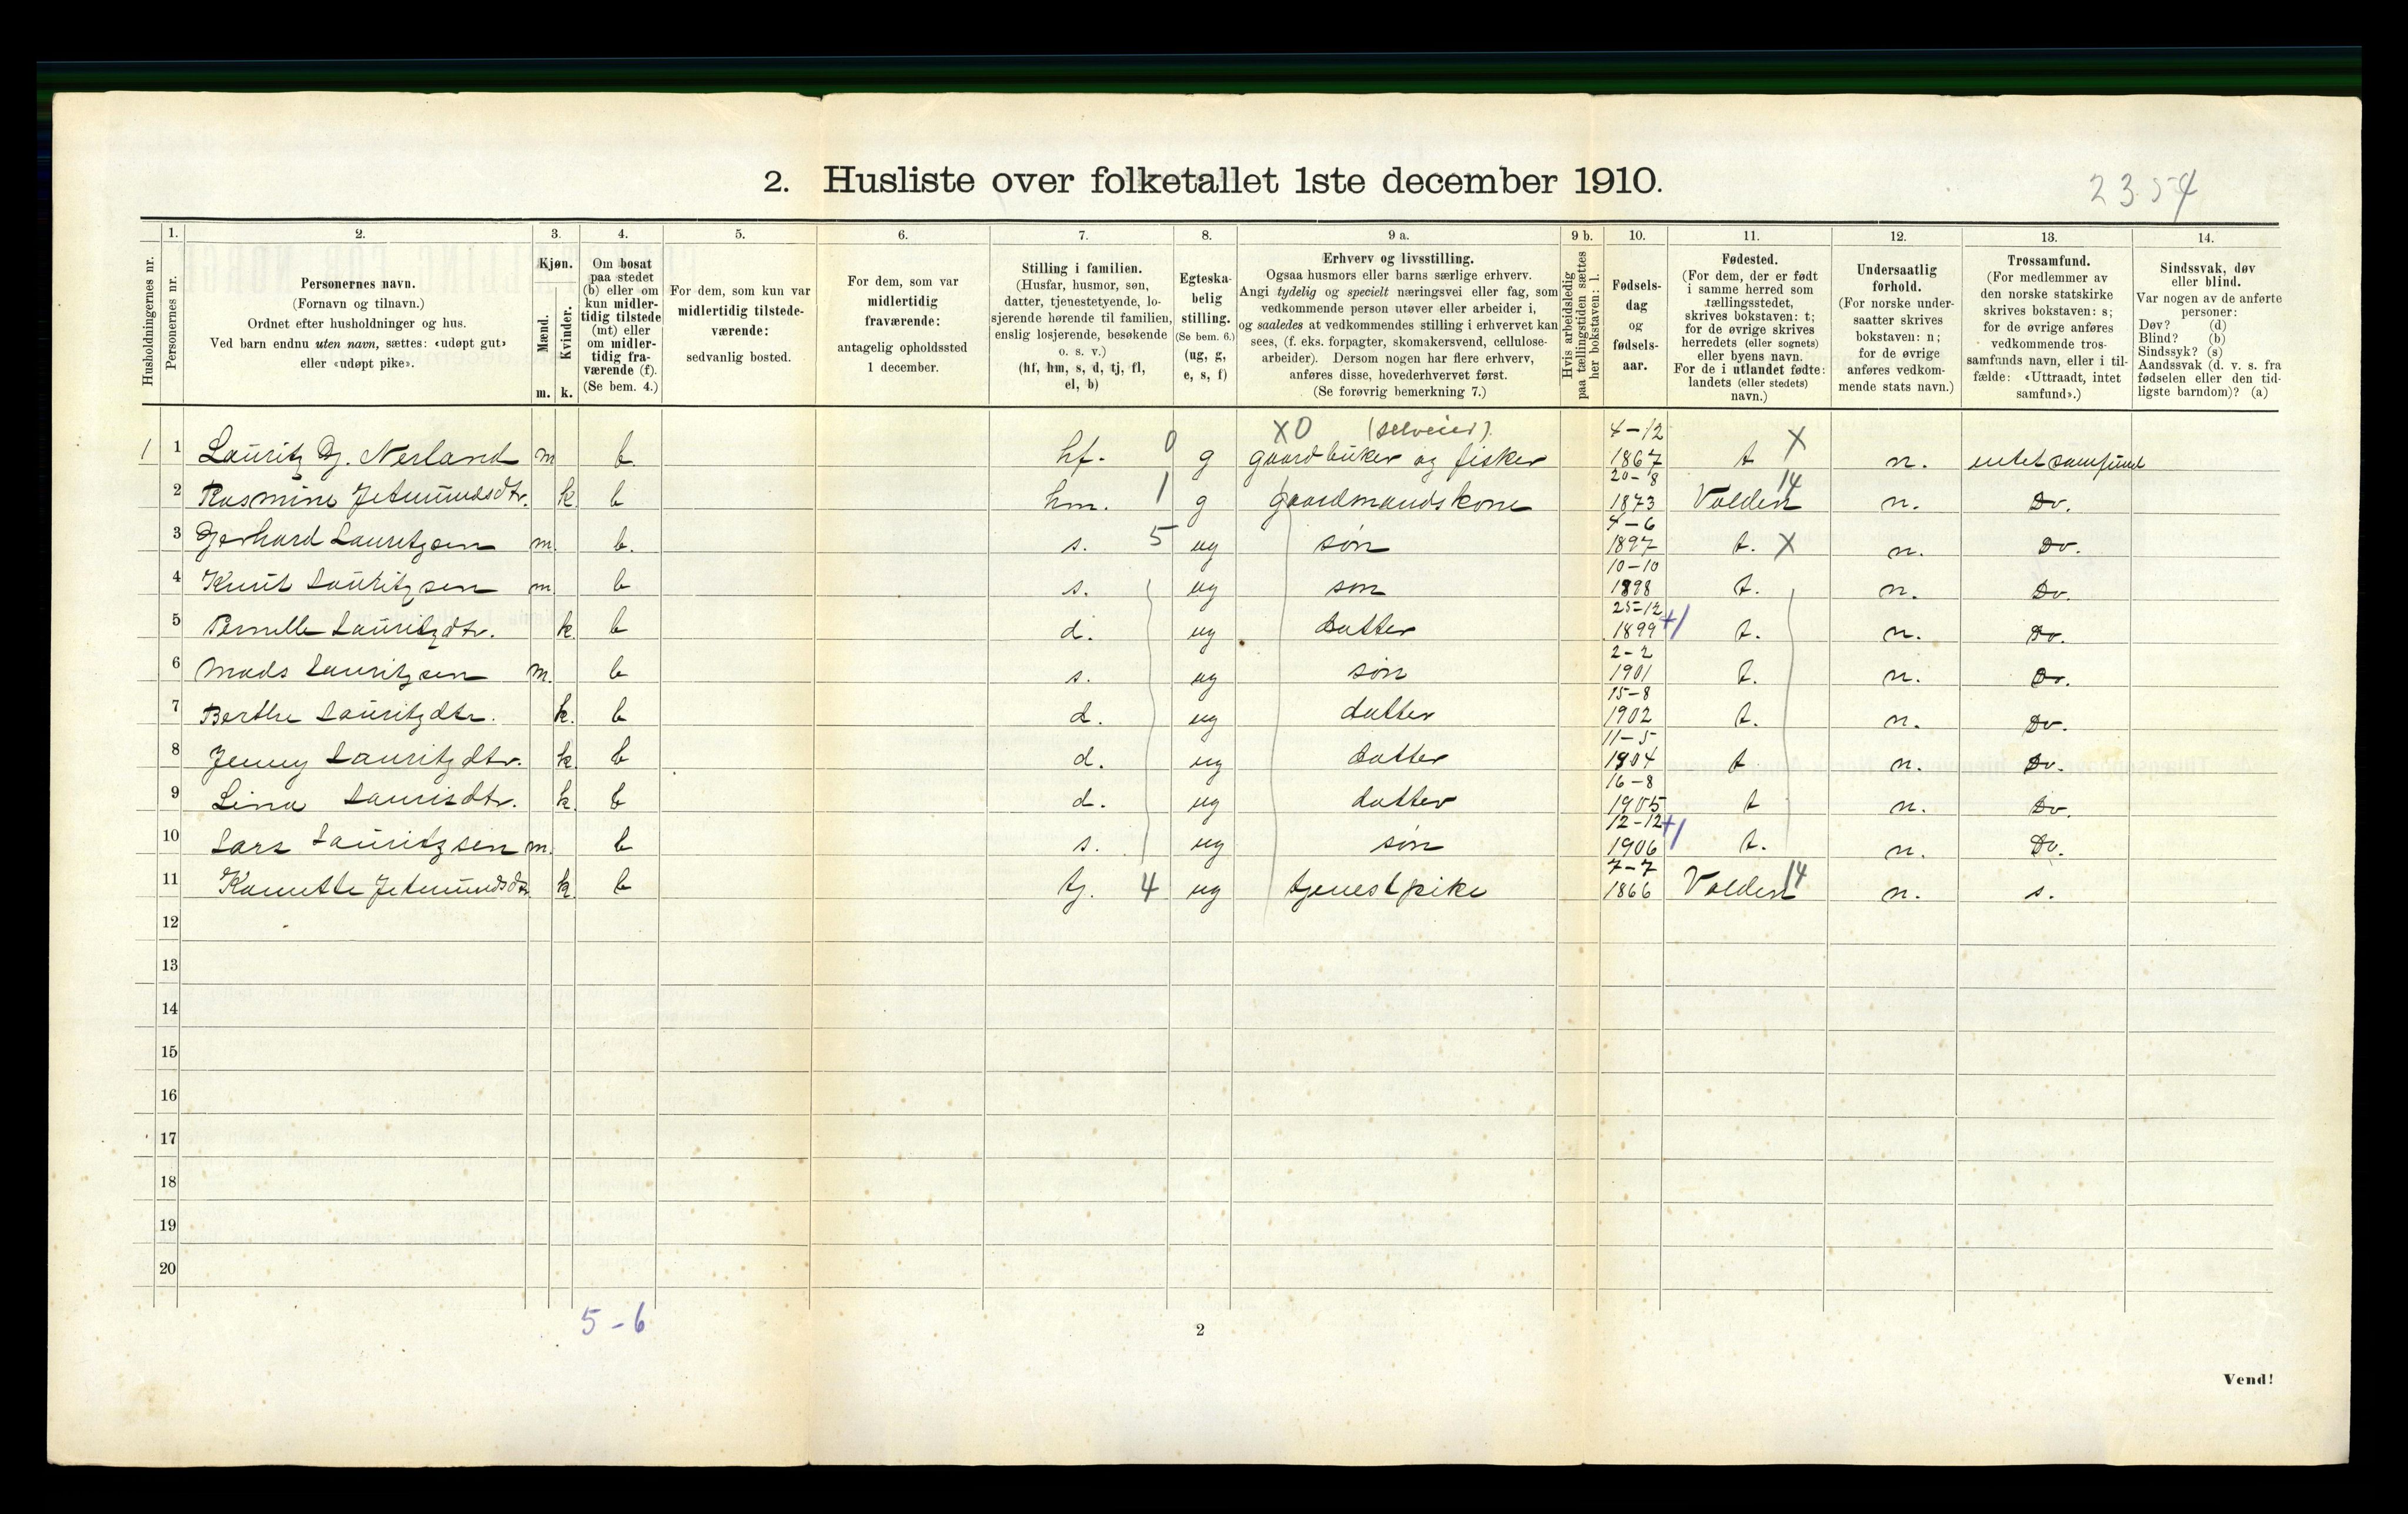 2. Husliste over folketallet 1ste december 1910.
23.54
Husholdningernes nr.
1.
Personernes nr.
2.
Personernes navn.
(Fornavn og tilnavn.)
Ordnet efter husholdninger og hus.
Ved barn endnu uten navn, sættes: «udøpt gut»
eller «udøpt pike».
3.
Kjøn.
Mænd.
Kvinder.
m. k.
4.
Om bosat
paa stedet
(b) eller om
kun midler-
tidig tilstede
(mt) eller
om midler-
tidig fra-
værende (f).
(Se bem. 4.)
5.
For dem, som kun var
midlertidig tilstede-
værende:
sedvanlig bosted.
6.
For dem, som var
midlertidig
fraværende:
antagelig opholdssted
1 december.
7.
Stilling i familien.
(Husfar, husmor, søn,
datter, tjenestetyende, lo-
sjerende hørende til familien,
enslig losjerende, besøkende
o. s. v.)
(hf, hm, s, d, tj, fl,
el, b)
8.
Egteska-
belig
stilling.
(Se bem. 6.)
(ug, g,
e, s, f)
9 a.
Erhverv og livsstilling.
Ogsaa husmors eller barns særlige erhverv.
Angi tydelig og specielt næringsvei eller fag, som
vedkommende person utøver eller arbeider i,
og saaledes at vedkommendes stilling i erhvervet kan
sees, (f. eks. forpagter, skomakersvend, cellulose-
arbeider). Dersom nogen har flere erhverv,
anføres disse, hovederhvervet først.
(Se forøvrig bemerkning 7.)
9 b.
Hvis arbeidsledig
paa tællingstiden sættes
her bokstaven: l.
10.
Fødsels-
dag
og
fødsels-
aar.
11.
Fødested.
(For dem, der er født
i samme herred som
tællingsstedet,
skrives bokstaven: t;
for de øvrige skrives
herredets (eller sognets)
eller byens navn.
For de i utlandet fødte:
landets (eller stedets)
navn.)
12.
Undersaatlig
forhold.
(For norske under-
saatter skrives
bokstaven: n;
for de øvrige
anføres vedkom-
mende stats navn.)
13.
Trossamfund.
(For medlemmer av
den norske statskirke
skrives bokstaven: s;
for de øvrige anføres
vedkommende tros-
samfunds navn, eller i til-
fælde: «Uttraadt, intet
samfund».)
14.
Sindssvak, døv
eller blind.
Var nogen av de anførte
personer:
Døv? (d)
Blind? (b)
Sindssyk? (s)
Aandssvak (d. v. s. fra
fødselen eller den tid-
ligste barndom)? (a)
X0 (selveier) 4-12 X
1 1 Lauritz Dj. Nerland m b. hf. 0 g gaardbruker og fisker 1867 t n. intet samfund
20-8 14
2 Rasmine Jetmundsdtr. k b hm. 1 g gaardmandskone 1873 Volden n. Do.
4-6
3 Gjerhard Lauritzsen m. b. s. 5 ug søn 1897 t. X n. Do.
10-10
4 Knut Lauritzsen m b s. ug søn 1898 t. n. Do.
25-12 +1
5 Pernille Lauritzdtr. k. b d. ug datter 1899 t. n. Do.
2-2
6 Mads Lauritzsen m. b s. ug søn 1901 t. n. Do.
15-8
7 Berthe Lauritzdtr. k. b d. ug datter 1902 t. n. Do.
11-5
8 Jenny Lauritzdtr. k b d. ug datter 1904 t n. Do.
16-8
9 Lina Laurisdtr. k. b d. ug datter 1905 t n. Do.
12-12 +1
10 Lars Lauritzsen m. b s. ug søn 1906 t. n. Do.
7-7 14
11 Kanutte Jetmundsdtr k b tj. 4 ug tjenestpike 1866 Volden n. s.
12
13
14
15
16
17
18
19
20
5-6
2
Vend!